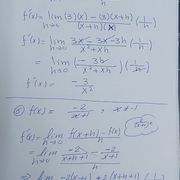 f'(x) = lim h→0 (3)(x) - (3)(x+h) / (x+h)(x) (1/h)
f'(x) = lim h→0 3x - 3x - 3h / x²+xh (1/h)
= lim h→0 (- 3h / x²+xh)(1/h)
f'(x) = - 3/x²
f(x) = -2/x+1 , x≠-1
f'(x) = lim h→0 f(x+h) - f(x) / h
= lim h→0 -2/x+h+1 - -2/x+1 / h